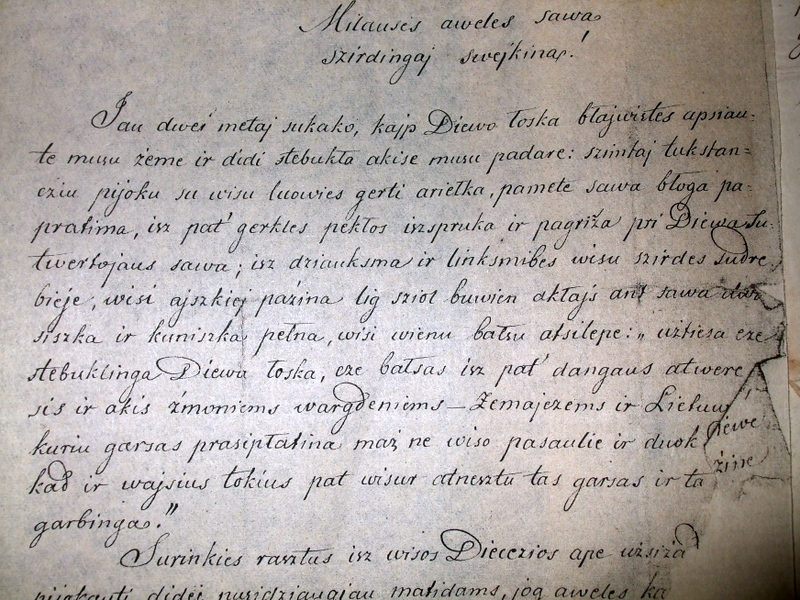 Milausès aweles sawa
szirdingaj swejkina!
Jau dwei metaj sukako, kajp Diewo łoska błajwistes apsiau-
te musu źeme ir didi stebukła akise musu padare: szimtaj tukstan-
cziu pijoku su wisu luowies gerti ariełka, pamete sawa błoga pa-
pratima, isz pat' gerkles pekłos iszspruka ir pagriźa pri Diewa Su-
twertojaus sawa; isz dziauksma ir linksmibes wisu szirdes sudre-
bieje, wisi ajszkiej paźina lig sziol buwien akłajs ant sawa
siszka ir kuniszka pełna, wisi wienu bałsu atsilepe: „użtiesa cze
stebuklinga Diewa łoska, cze bałsas isz pat' dangaus atwere
sis ir akis źmoniems wargdeniems — Żemajczems ir Lietuw
kuriu garsas prasiplatina maź ne wiso pasaulie ir duok Diewe
kad ir wajsius tokius pat wisur atnesztu tas garsas ir ta źine
garbinga."
Surinkies rasztus isz wisos Diecezios ape użsiźa
pijokauti didej nusidziaugiau matidams, jog aweles ka